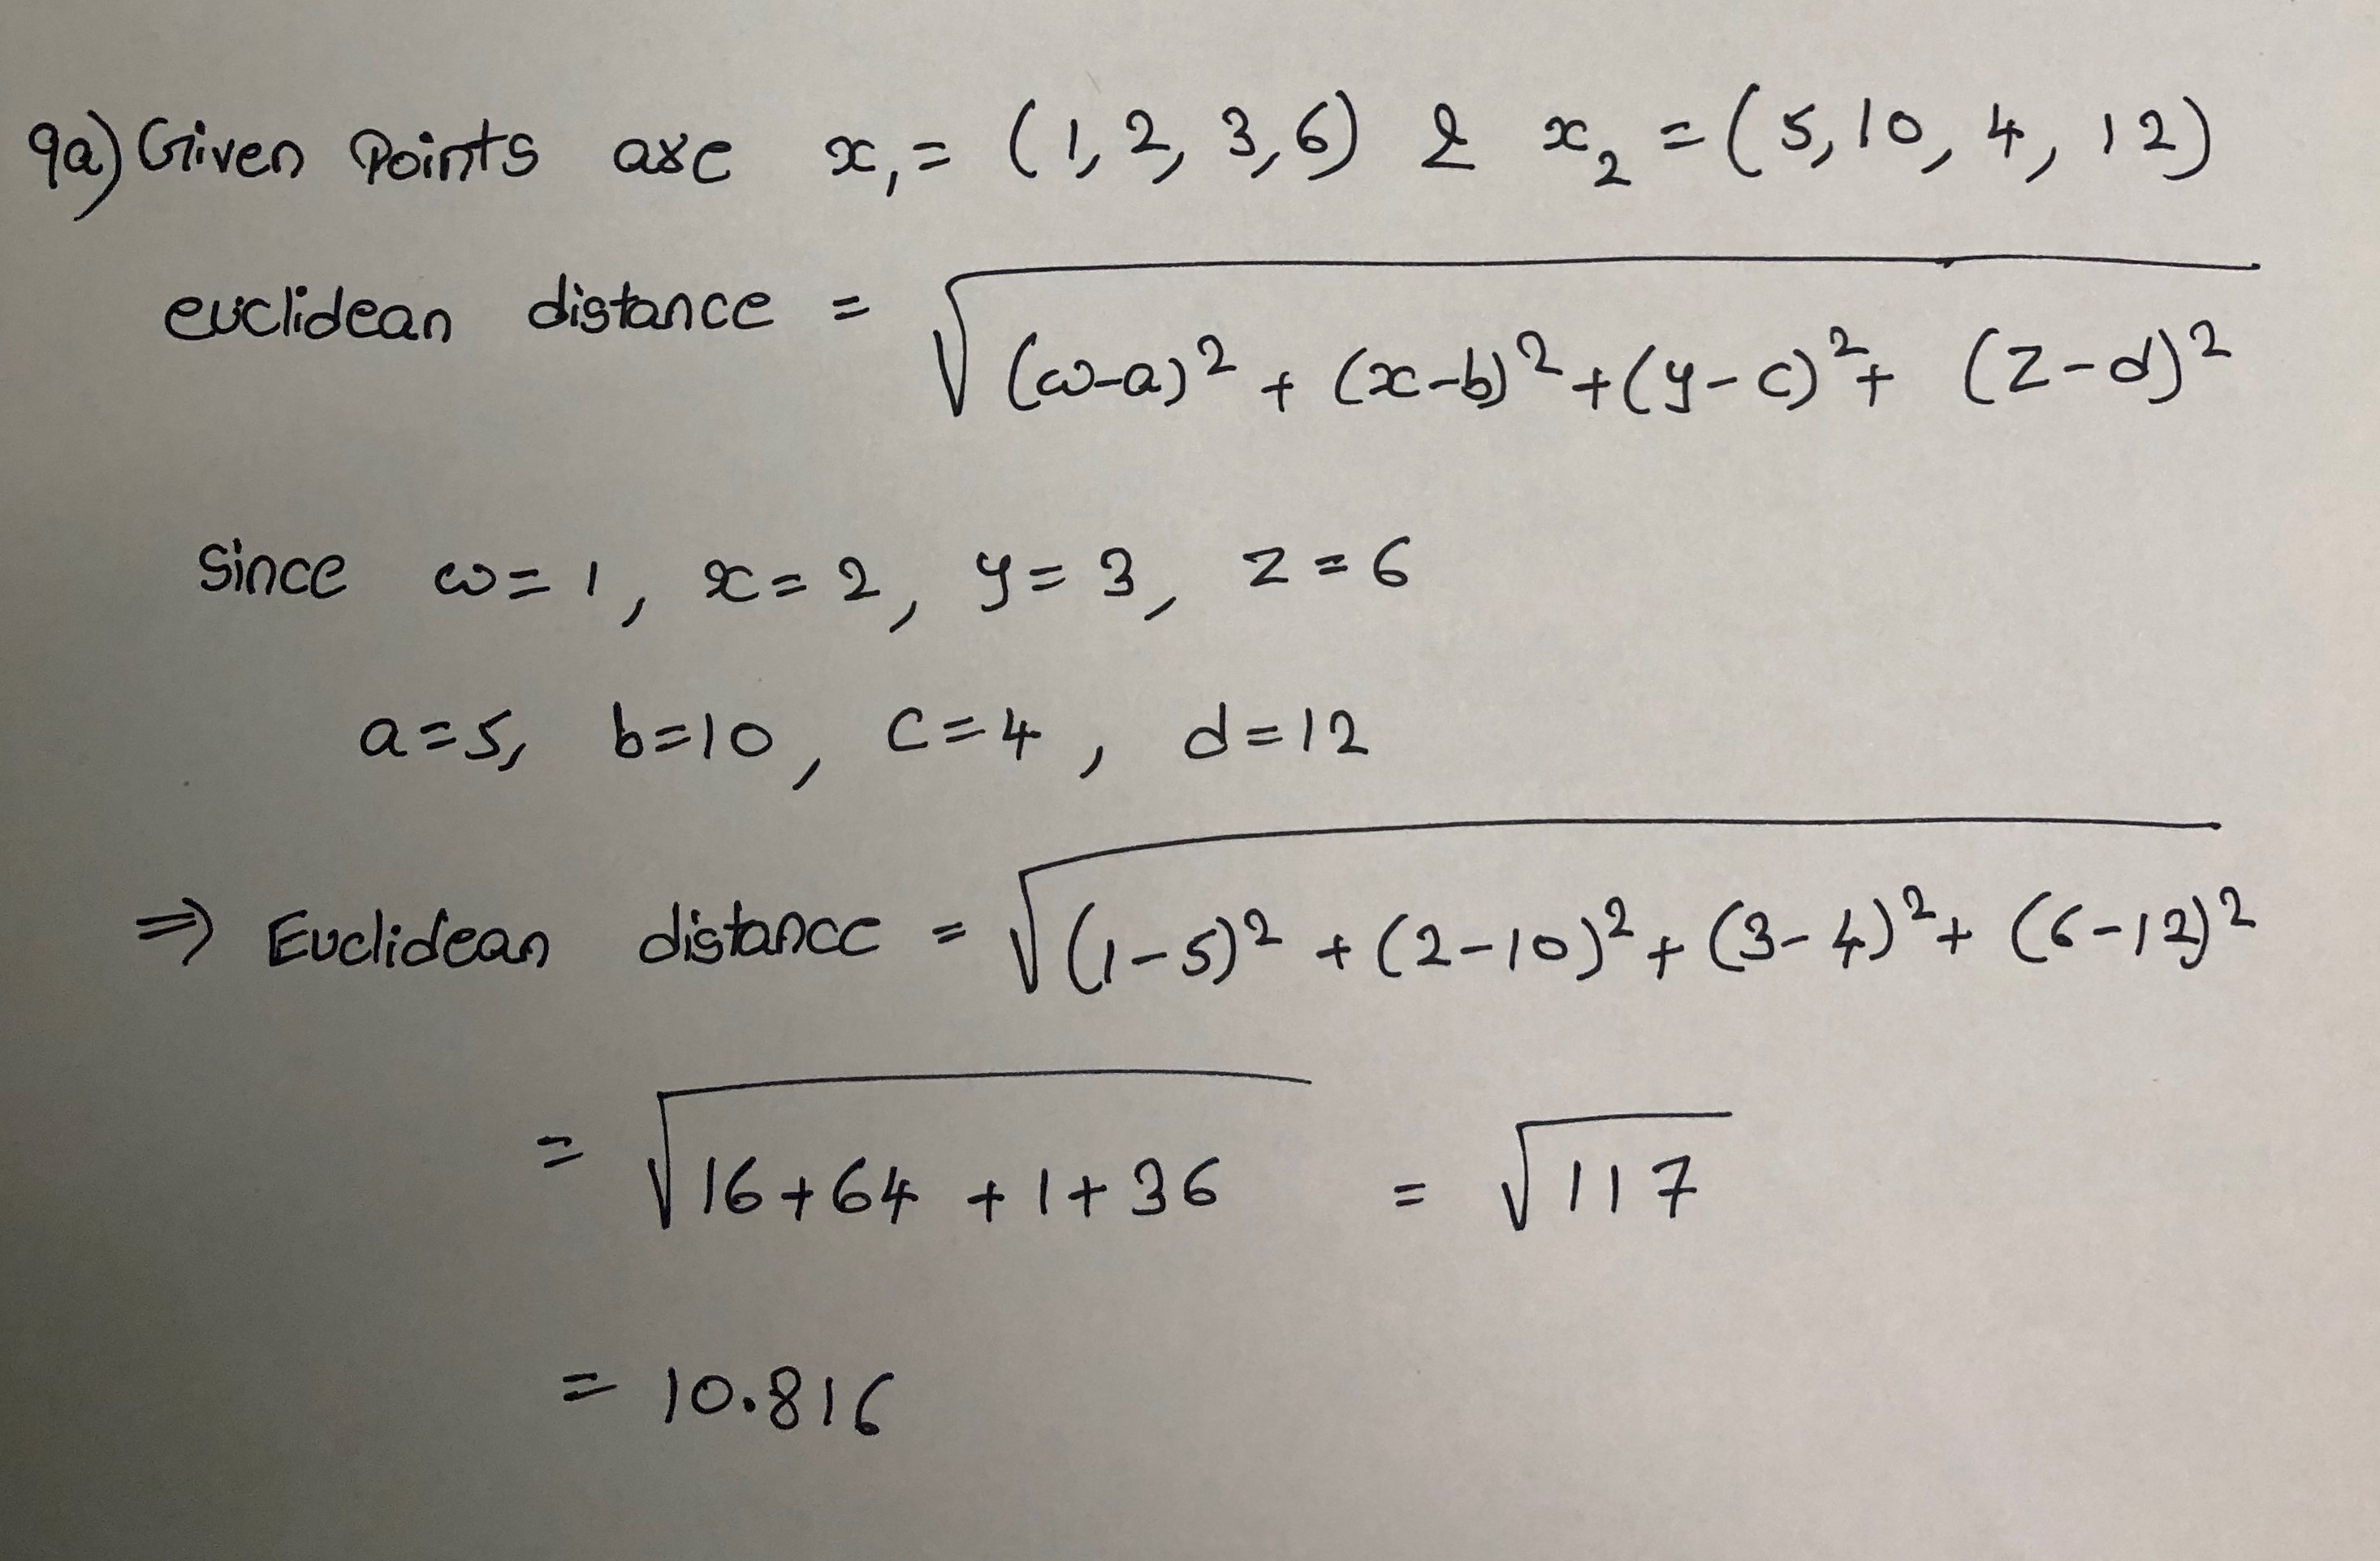 9a) Given Points are x₁ = (1, 2, 3, 6) & x₂ = (5, 10, 4, 12)
euclidean distance = √((w-a)² + (x-b)² + (y-c)² + (z-d)²)
Since w = 1, x = 2, y = 3, z = 6
a = 5, b = 10, c = 4, d = 12
⇒ Euclidean distance = √((1-5)² + (2-10)² + (3-4)² + (6-12)²)
= √(16+64+1+36) = √117
= 10.816